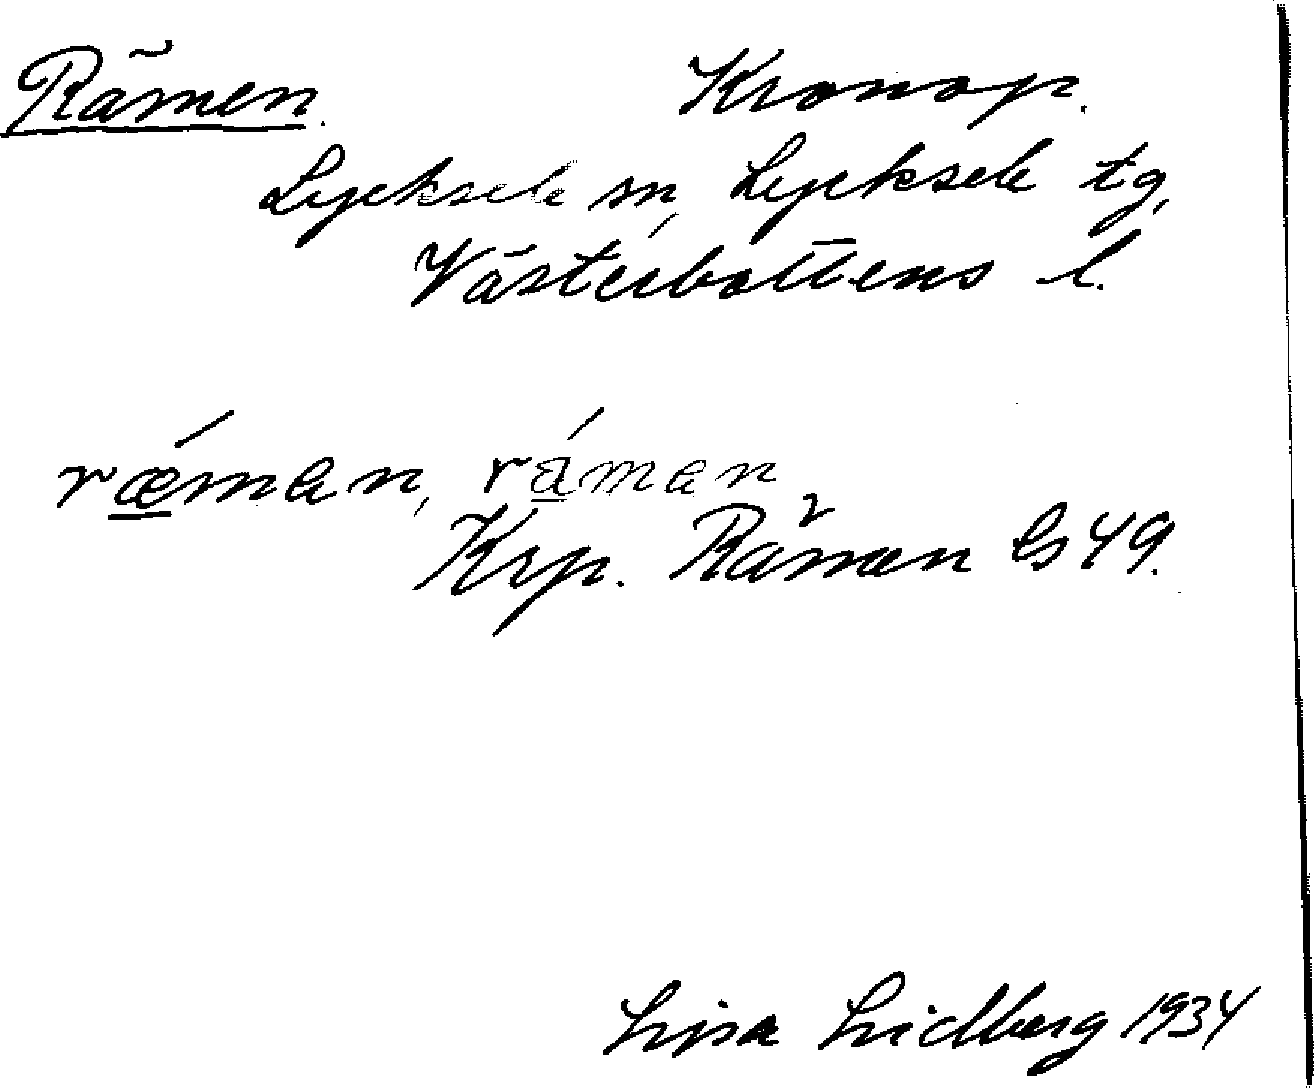 Råmen. Kronop.
Lycksele sn, Lycksele tg,
Västerbottens l.
rǽman, ráman
Krp. Råmen Gs 49.
Lisa Lidberg 1934